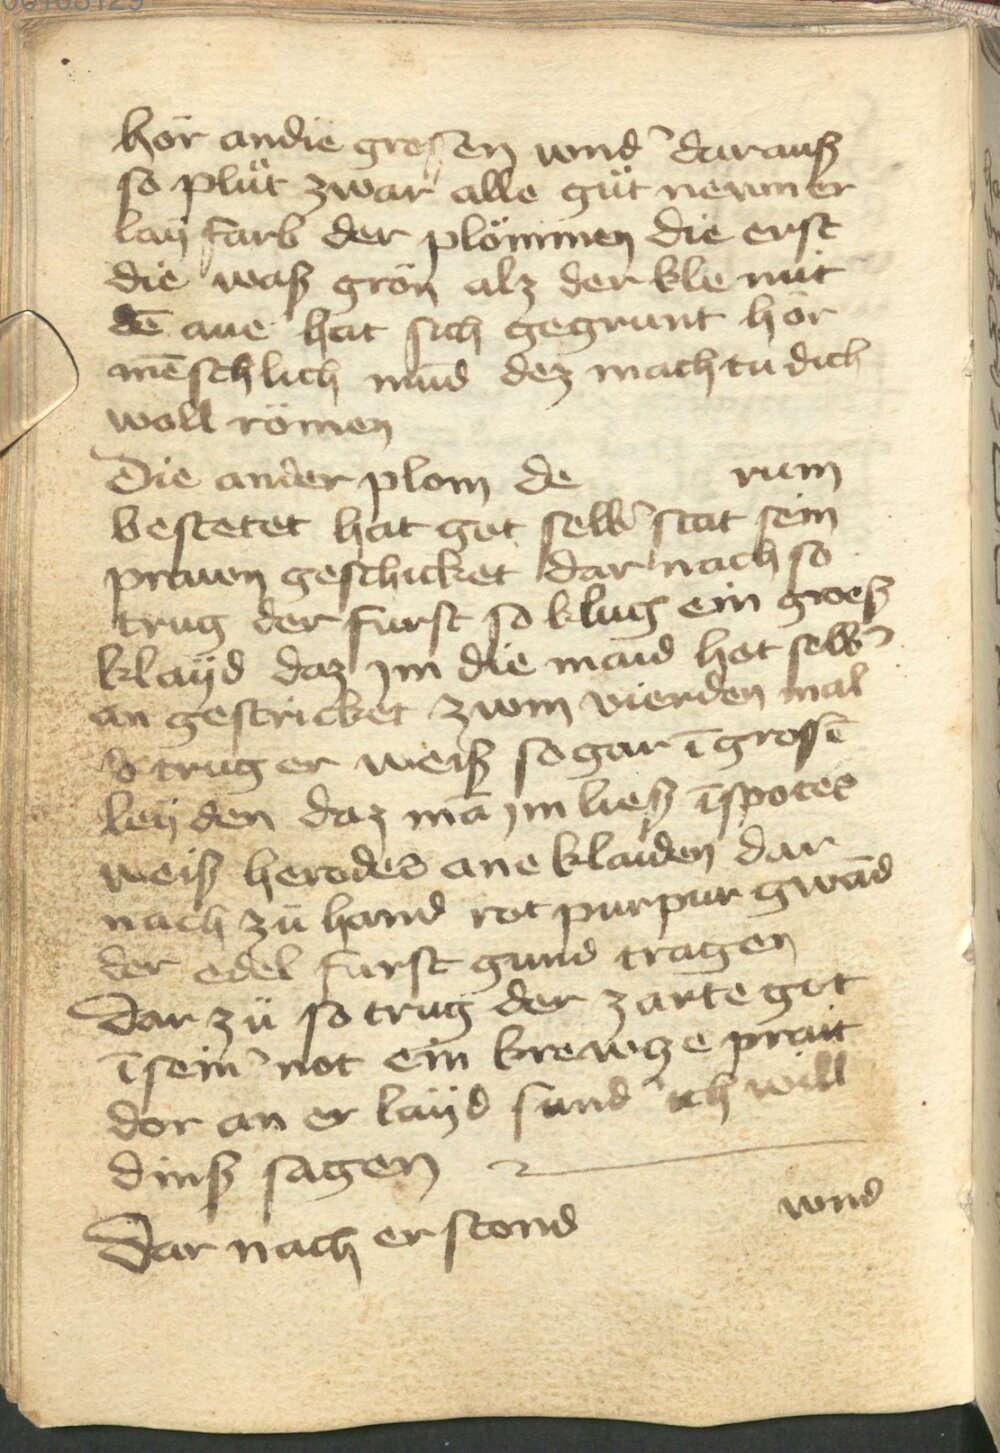 00105129
hör andie gresſen vnd darauß
so plüt zwar alle güt newner
laÿ farb der plömmen die erst
die waß grön alz der kle mit
dē aue hat sich gegrunt hör
mēschlich mūd dez machtu dich
woll römen
Die ander plom de rum
bestetet hat got selb' stat sein
prawen geschicket dar nach so
trug der furst so klug ein groeß
klaÿd daz jm die maid het selb'
an gestricket zwm vierden mal
so trug er weiß so gar ī grossē
leÿden daz mā jm ließ ī spotes
weiß herodes ane klaiden dar
nach zü hand rot purpur gwād
der edel furst gund tragen
Dar zü so trug der zarte got
ī sein' not ein krewtze prait
dor an er laÿd sund ich will
dinß sagen
Dar nach er stond vnd